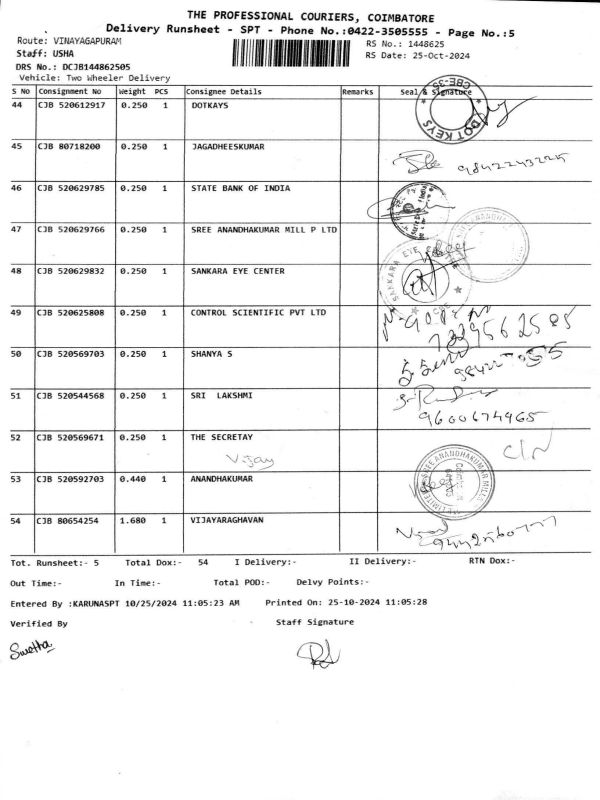 THE PROFESSIONAL COURIERS, COIMBATORE
Delivery Runsheet - SPT - Phone No.:0422-3505555 - Page No.:5
Route: VINAYAGAPURAM RS No.: 1448625
Staff: USHA RS Date: 25-Oct-2024
DRS No.: DCJB144862505
Vehicle: Two Wheeler Delivery
S No Consignment No Weight PCS Consignee Details Remarks Seal & Signature
44 CJB 520612917 0.250 1 DOTKAYS
CBE-35
DOT KEYS
45 CJB 80718200 0.250 1 JAGADHEESKUMAR
9842243225
46 CJB 520629785 0.250 1 STATE BANK OF INDIA
47 CJB 520629766 0.250 1 SREE ANANDHAKUMAR MILL P LTD
48 CJB 520629832 0.250 1 SANKARA EYE CENTER
SANKARA EYE
49 CJB 520625808 0.250 1 CONTROL SCIENTIFIC PVT LTD
50 CJB 520569703 0.250 1 SHANYA S
51 CJB 520544568 0.250 1 SRI LAKSHMI
9600674965
52 CJB 520569671 0.250 1 THE SECRETAY
Vijay
53 CJB 520592703 0.440 1 ANANDHAKUMAR
SREE ANANDHAKUMAR MILLS LIMITED
54 CJB 80654254 1.680 1 VIJAYARAGHAVAN
Tot. Runsheet:- 5 Total Dox:- 54 I Delivery:- II Delivery:- RTN Dox:-
Out Time:- In Time:- Total POD:- Delvy Points:-
Entered By :KARUNASPT 10/25/2024 11:05:23 AM Printed On: 25-10-2024 11:05:28
Verified By Staff Signature
Swetha